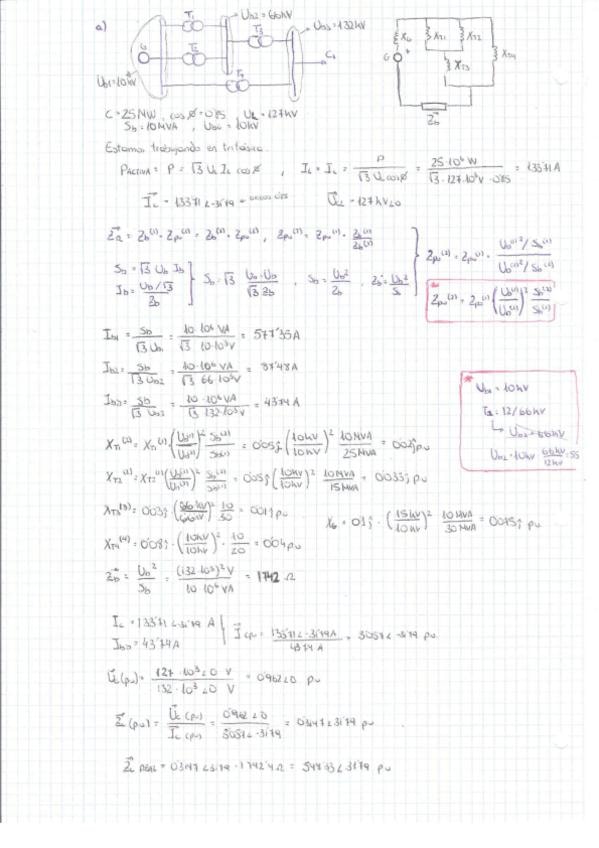 a)
T1
Ub2 = 66kV
Ub3 = 132kV
T3
G
T2
T4
C1
Ub1 = 10kV
XG
XT1
XT2
XT3
XT4
G
Zb
C = 25MW, cos ø = 0'85 UL = 127kV
Sb = 10MVA, UbG = 10kV
Estamos trabajando en trifásica.
PACTIVA = P = √3 UL IL cos ø , IL = IL = P / √3 UL cos ø = 25·10⁶ W / √3·127·10³V·0'85 = 133'71 A
IL = 133'71 ∠-31'79 =
UL = 127kV∠0
ZΩ = Zb⁽¹⁾ · Zpu⁽¹⁾ = Zb⁽²⁾ · Zpu⁽²⁾ , Zpu⁽²⁾ = Zpu⁽¹⁾ · Zb⁽¹⁾ / Zb⁽²⁾
Zpu⁽²⁾ = Zpu⁽¹⁾ · Ub⁽¹⁾² / Sb⁽¹⁾ / Ub⁽²⁾² / Sb⁽²⁾
Sb = √3 Ub Ib
Ib = Ub/√3 / Zb
Sb = √3 Ub · Ub / √3 Zb , Sb = Ub² / Zb , Zb = Ub² / S
* Zpu⁽²⁾ = Zpu⁽¹⁾ (Ub⁽¹⁾ / Ub⁽²⁾)² Sb⁽²⁾ / Sb⁽¹⁾
Ib1 = Sb / √3 Ub1 = 10·10⁶ VA / √3 10·10³V = 577'35A
Ib2 = Sb / √3 Ub2 = 10·10⁶ VA / √3 66·10³V = 87'48A
Ib3 = Sb / √3 Ub3 = 10·10⁶ VA / √3 132·10³V = 43'74A
* Ub1 = 10kV
12/66kV
↳ Ub2 = 66kV
Ub2 = 10kV 66kV / 12kV = 55
XT1⁽²⁾ = XT1⁽¹⁾ (Ub⁽¹⁾ / Ub⁽²⁾)² Sb⁽²⁾ / Sb⁽¹⁾ = 0'05j (10kV / 10kV)² 10MVA / 25MVA = 0'02j pu
XT2⁽²⁾ = XT2⁽¹⁾ (Ub⁽¹⁾ / Ub⁽²⁾)² Sb⁽²⁾ / Sb⁽¹⁾ = 0'05j (10kV / 10kV)² 10MVA / 15MVA = 0'033j pu
XT3⁽³⁾ = 0'03j (66kV / 66kV)² 10 / 30 = 0'01j pu
XG = 0'1j · (15kV / 10kV)² 10MVA / 30MVA = 0'075j pu
XT4⁽⁴⁾ = 0'08j · (10kV / 10kV)² · 10 / 20 = 0'04 pu
Zb = Ub² / Sb = (132·10³)² V / 10·10⁶ VA = 1742 Ω
IL = 133'71 ∠-31'79 A
Ib3 = 43'74A
IC pu = 133'71∠-31'79A / 43'74 A = 3'057∠-31'79 pu.
UC (pu) = 127·10³∠0 V / 132·10³∠0 V = 0'962∠0 pu
ZL (pu) = UC (pu) / IC (pu) = 0'962∠0 / 3'057∠-31'79 = 0'3147∠31'79 pu
ZL REAL = 0'3147∠31'79 · 1742'4Ω = 548'33∠31'79 pu